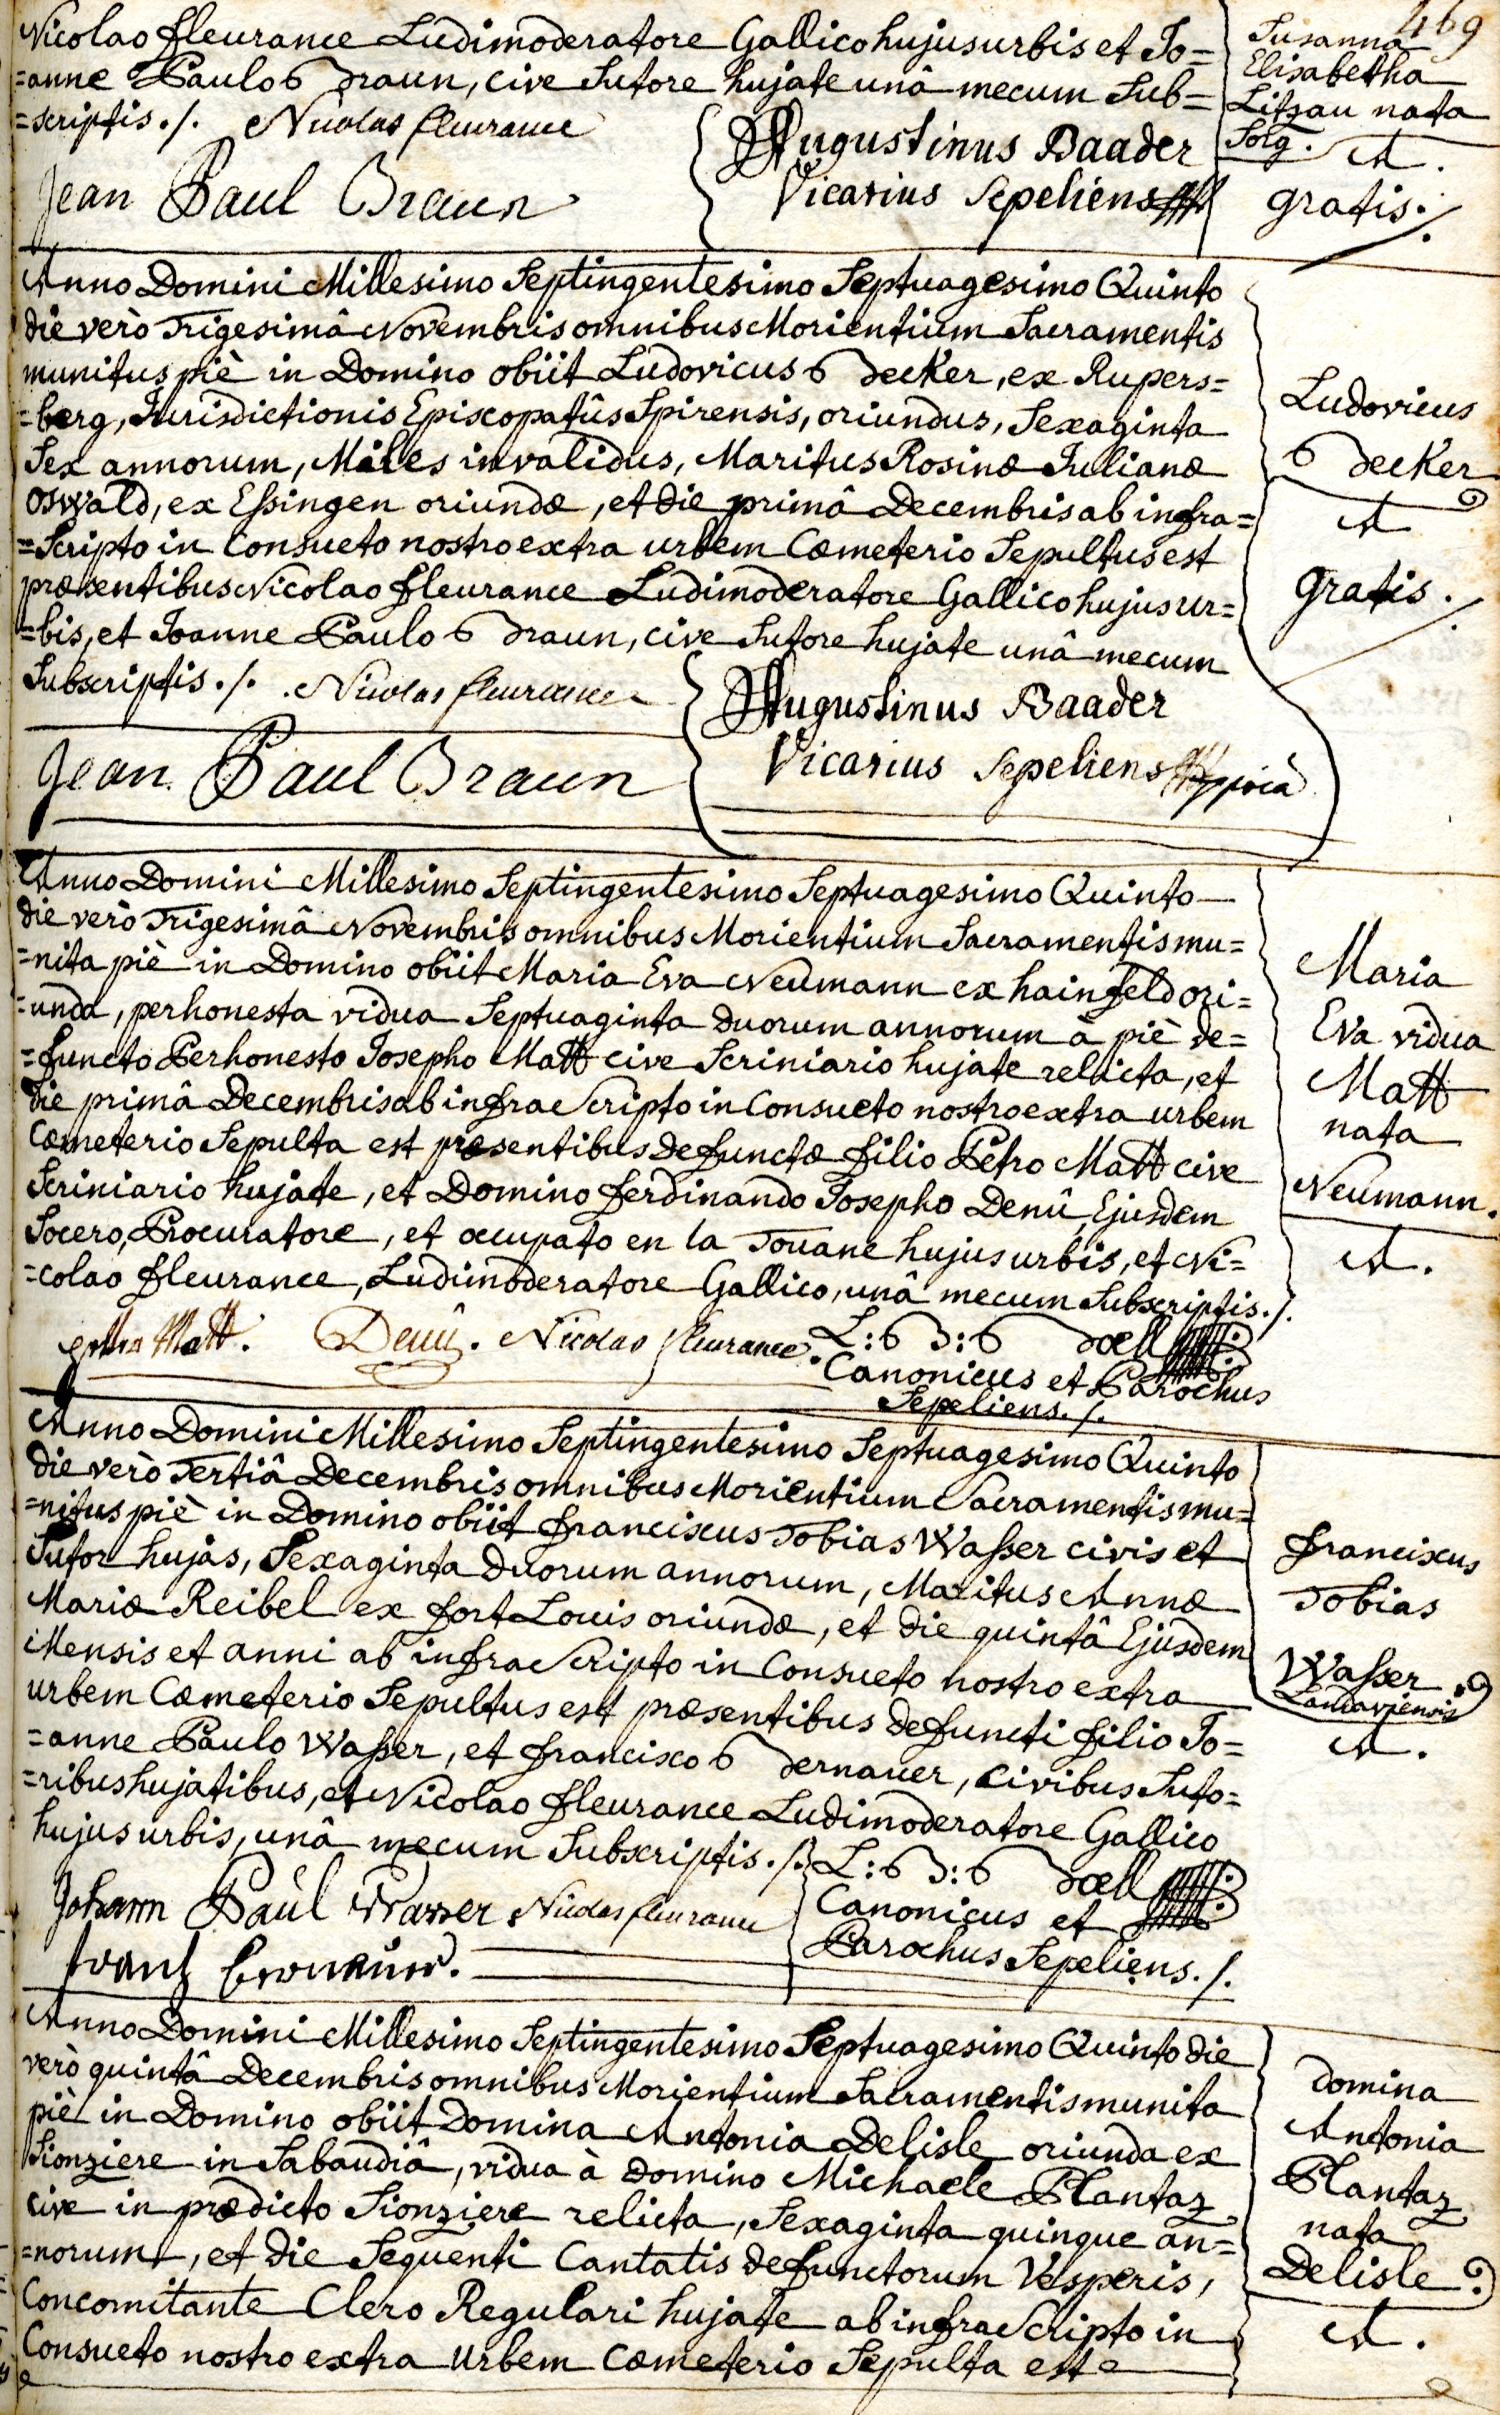 469
Nicolao fleurance Ludimoderatore Gallico hujus urbis et Jo=
=anne Paulo Braun, cive Sutore hujate unâ mecum Sub=
=scriptis ./. Nicolas fleurance
Jean Paul Braun
Augustinus Baader
Vicarius Sepeliens
Susanna
Elisabetha
Litzau nata
Sorg.
A.
gratis ./.
Anno Domini Millesimo Septingentesimo Septuagesimo Quinto
die verò Trigesimâ Novembris omnibus Morientium Sacramentis
munitus piè in Domino obiit Ludovicus Becker, ex Rupers=
=berg, Jurisdictionis Episcopatûs Spirensis, oriundus, Sexaginta
Sex annorum, Miles invalidus, Maritus Rosinæ Julianæ
Oswald, ex Eßingen oriundæ, et die primâ Decembris ab infra=
=Scripto in Consueto nostro extra urbem Cœmeterio Sepultus est
præsentibus Nicolao fleurance Ludimoderatore Gallico hujus ur=
=bis, et Joanne Paulo Braun, cive Sutore hujate unâ mecum
Subscriptis ./. Nicolas fleurance
Jean Paul Braun
Augustinus Baader
Vicarius Sepeliens
Ludovicus
Becker
A
gratis ./.
Anno Domini Millesimo Septingentesimo Septuagesimo Quinto
die verò Trigesimâ Novembris omnibus Morientium Sacramentis mu=
=nita piè in Domino obiit Maria Eva Neumann ex hainfeld ori=
=unda, perhonesta vidua Septuaginta duorum annorum à piè de=
=functo Perhonesto Josepho Matt cive Scriniario hujate relicta, et
die primâ Decembris ab infra Scripto in Consueto nostro extra urbem
Cœmeterio Sepulta est præsentibus defunctæ filio Petro Matt cive
Scriniario hujate, et Domino ferdinando Josepho Denû Ejusdem
Socero, Procuratore, et occupato en la Douane hujus urbis, et Ni=
=colao fleurance, Ludimoderatore Gallico, unâ mecum Subscriptis ./.
Matt. Denû. Nicolas fleurance.
L: B: Bœll
Canonicus et Parochus
Sepeliens ./.
Maria
Eva vidua
Matt
nata
Neumann.
A.
Anno Domini Millesimo Septingentesimo Septuagesimo Quinto
die verò Tertiâ Decembris omnibus Morientium Sacramentis mu=
=nitus piè in Domino obiit franciscus Tobias Waßer civis et
Sutor hujas, Sexaginta duorum annorum, Maritus Annæ
Mariæ Reibel ex fort Louis oriundæ, et die quintâ Ejusdem
Mensis et anni ab infra Scripto in Consueto nostro extra
urbem Cœmeterio Sepultus est præsentibus defuncti filio Jo=
=anne Paulo Waßer, et francisco Bernauer, civibus Suto=
=ribus hujatibus, et Nicolao fleurance Ludimoderatore Gallico
hujus urbis, unâ mecum Subscriptis ./.
Johann Paul Wasser Nicolas fleurance
frantz Bernauer.
L: B: Bœll
Canonicus et
Parochus Sepeliens ./.
franciscus
Tobias
Waßer
Landaviensis
A.
Anno Domini Millesimo Septingentesimo Septuagesimo Quinto die
verò quintâ Decembris omnibus Morientium Sacramentis munita
piè in Domino obiit Domina Antonia Delisle oriunda ex
Sionziere in Sabaudiâ, vidua à Domino Michaele Plantaz
cive in prædicto Sionziere relicta, Sexaginta quinque an=
=norum, et die Sequenti Cantatis defunctorum Vesperis,
Concomitante Clero Regulari hujate ab infra Scripto in
Consueto nostro extra Urbem Cœmeterio Sepulta est
Domina
Antonia
Plantaz
nata
Delisle
A.